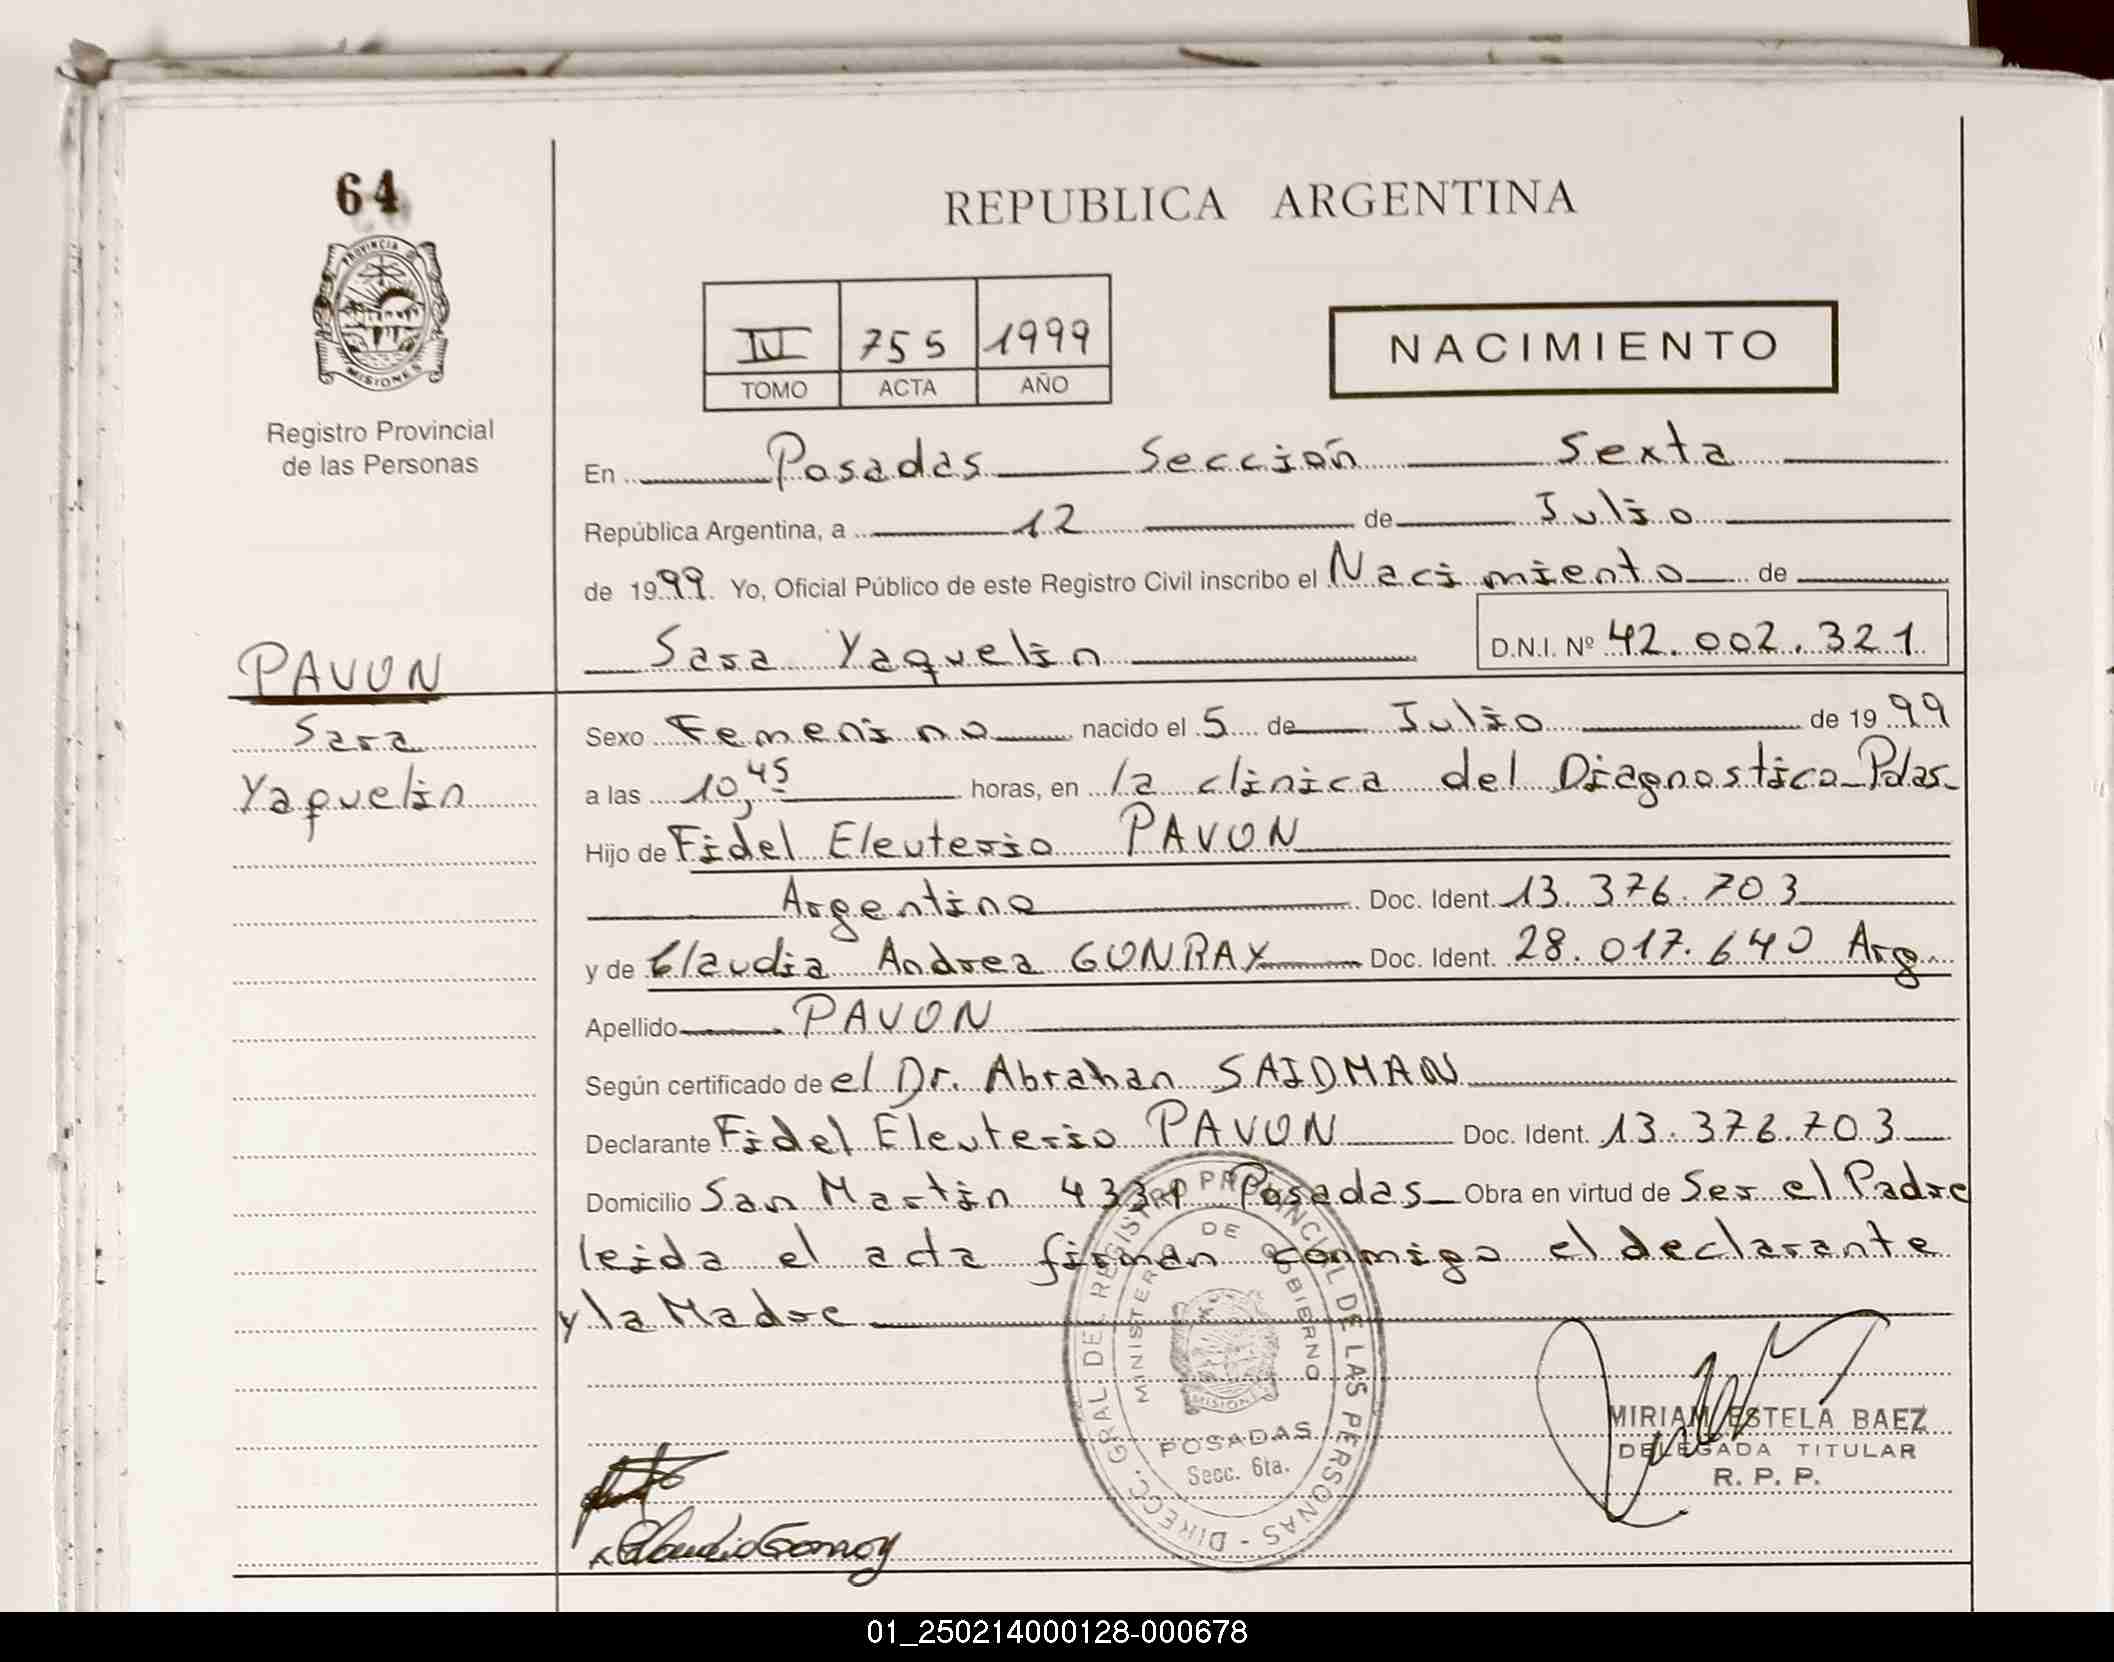 64
PROVINCIA DE
MISIONES
Registro Provincial
de las Personas
PAVON
Sara
Yaquelin
REPUBLICA ARGENTINA
IV 755 1999
TOMO ACTA AÑO
NACIMIENTO
En Posadas Sección Sexta
República Argentina, a 12 de Julio
de 1999. Yo, Oficial Público de este Registro Civil inscribo el Nacimiento de
Sara Yaquelin D.N.I. Nº 42.002.321
Sexo Femenino nacido el 5 de Julio de 1999
a las 10,45 horas, en la clinica del Diagnostico Pdas
Hijo de Fidel Eleuterio PAVON
Argentino Doc. Ident. 13.376.703
y de Claudia Andrea GONRAY Doc. Ident. 28.017.640 Arg.
Apellido PAVON
Según certificado de el Dr. Abrahan SAIDMAN
Declarante Fidel Eleuterio PAVON Doc. Ident. 13.376.703
Domicilio San Martin 4331 Posadas Obra en virtud de Ser el Padre
leida el acta firman conmigo el declarante
y la Madre
DIRECC. GRAL DEL REGISTRO PROVINCIAL DE LAS PERSONAS
MINISTERIO DE GOBIERNO
MISIONES
POSADAS
Secc. 6ta.
MIRIAM ESTELA BAEZ
DELEGADA TITULAR
R. P. P.
01_250214000128-000678